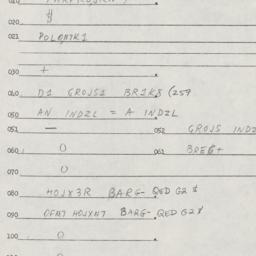 020
021 POLQMTK1
030 +
040 D1 GROJS1 BR1K8 (259
050 AN INDZL = A INDZL
051 — 052 GROJS INDZ
060 0 061 BREG+
070 0
080 HOJX3R BARG- QED G2 $
090 OFM7 HOJXM7 BARG- QED G2 $
100 0